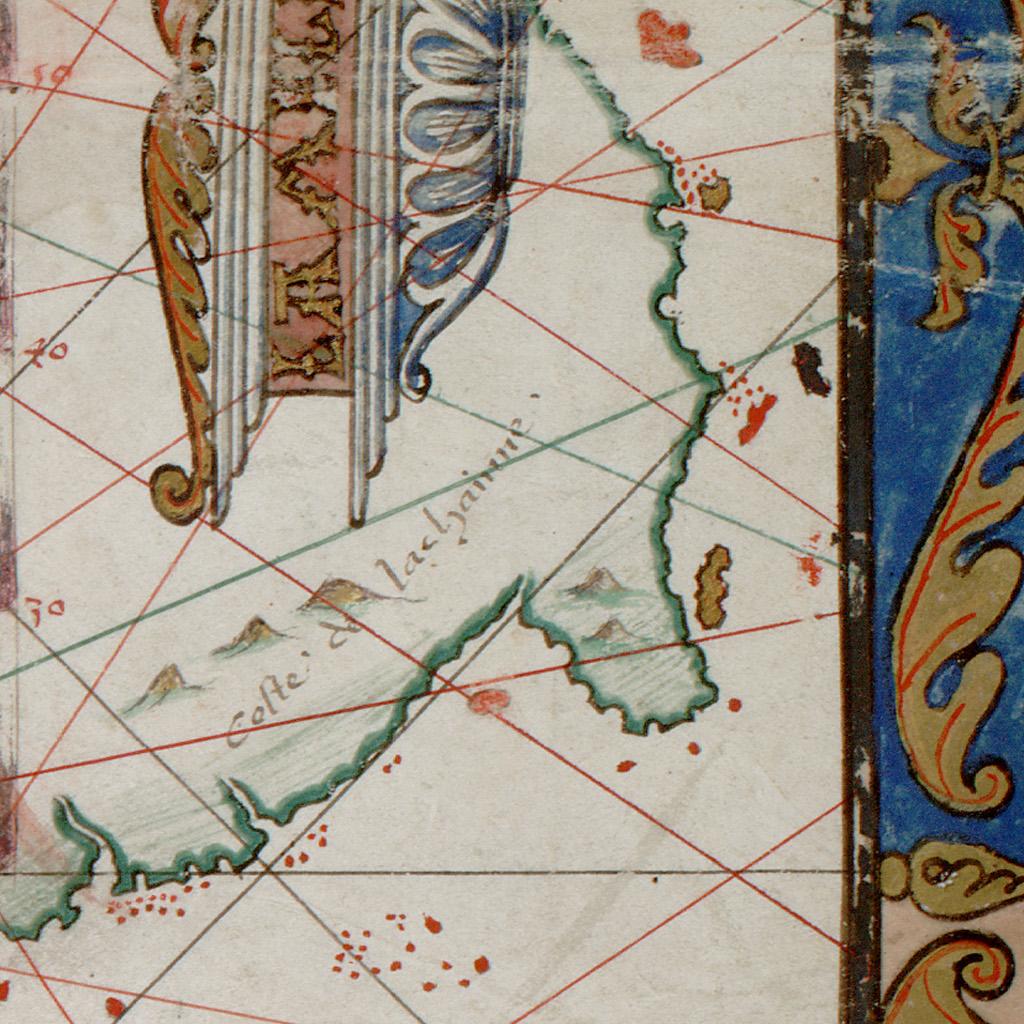 50
40
30
Coste: de lachainne.